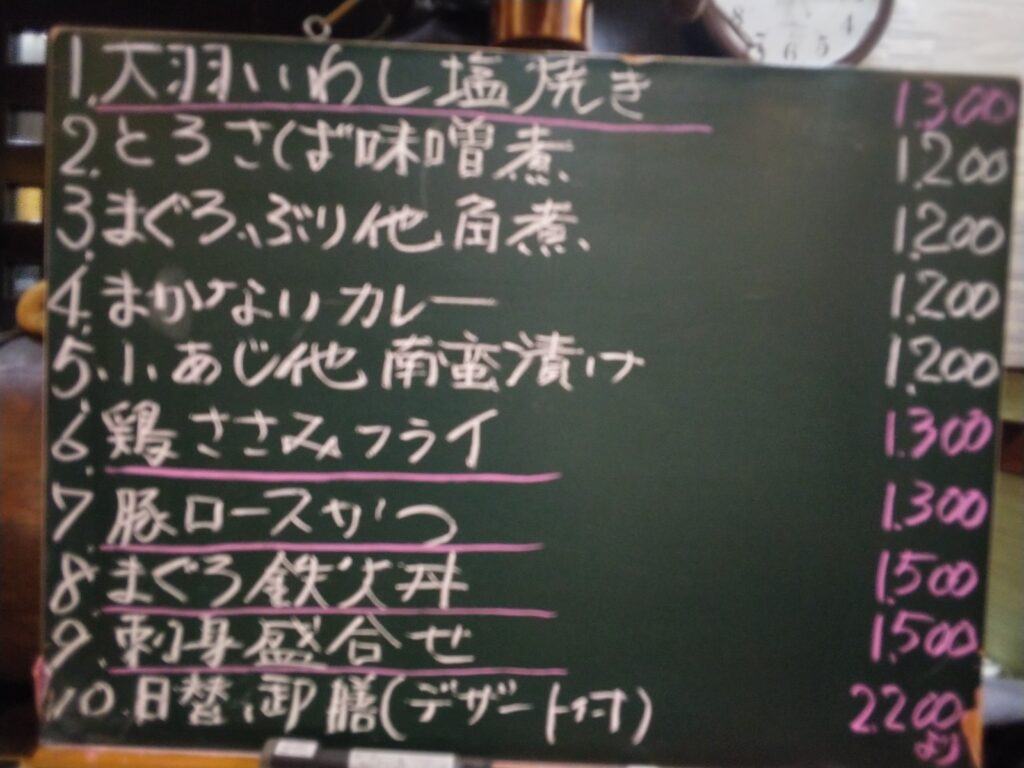 1. 大羽いわし塩焼き 1.300
2. とろさば味噌煮 1.200
3. まぐろ、ぶり他角煮 1.200
4. まかないカレー 1.200
5. 小あじ他南蛮漬け 1.200
6. 鶏ささみフライ 1.300
7. 豚ロースかつ 1.300
8. まぐろ鉄火丼 1.500
9. 刺身盛合せ 1.500
10. 日替、御膳(デザート付) 2200より
8 7 6 5 4